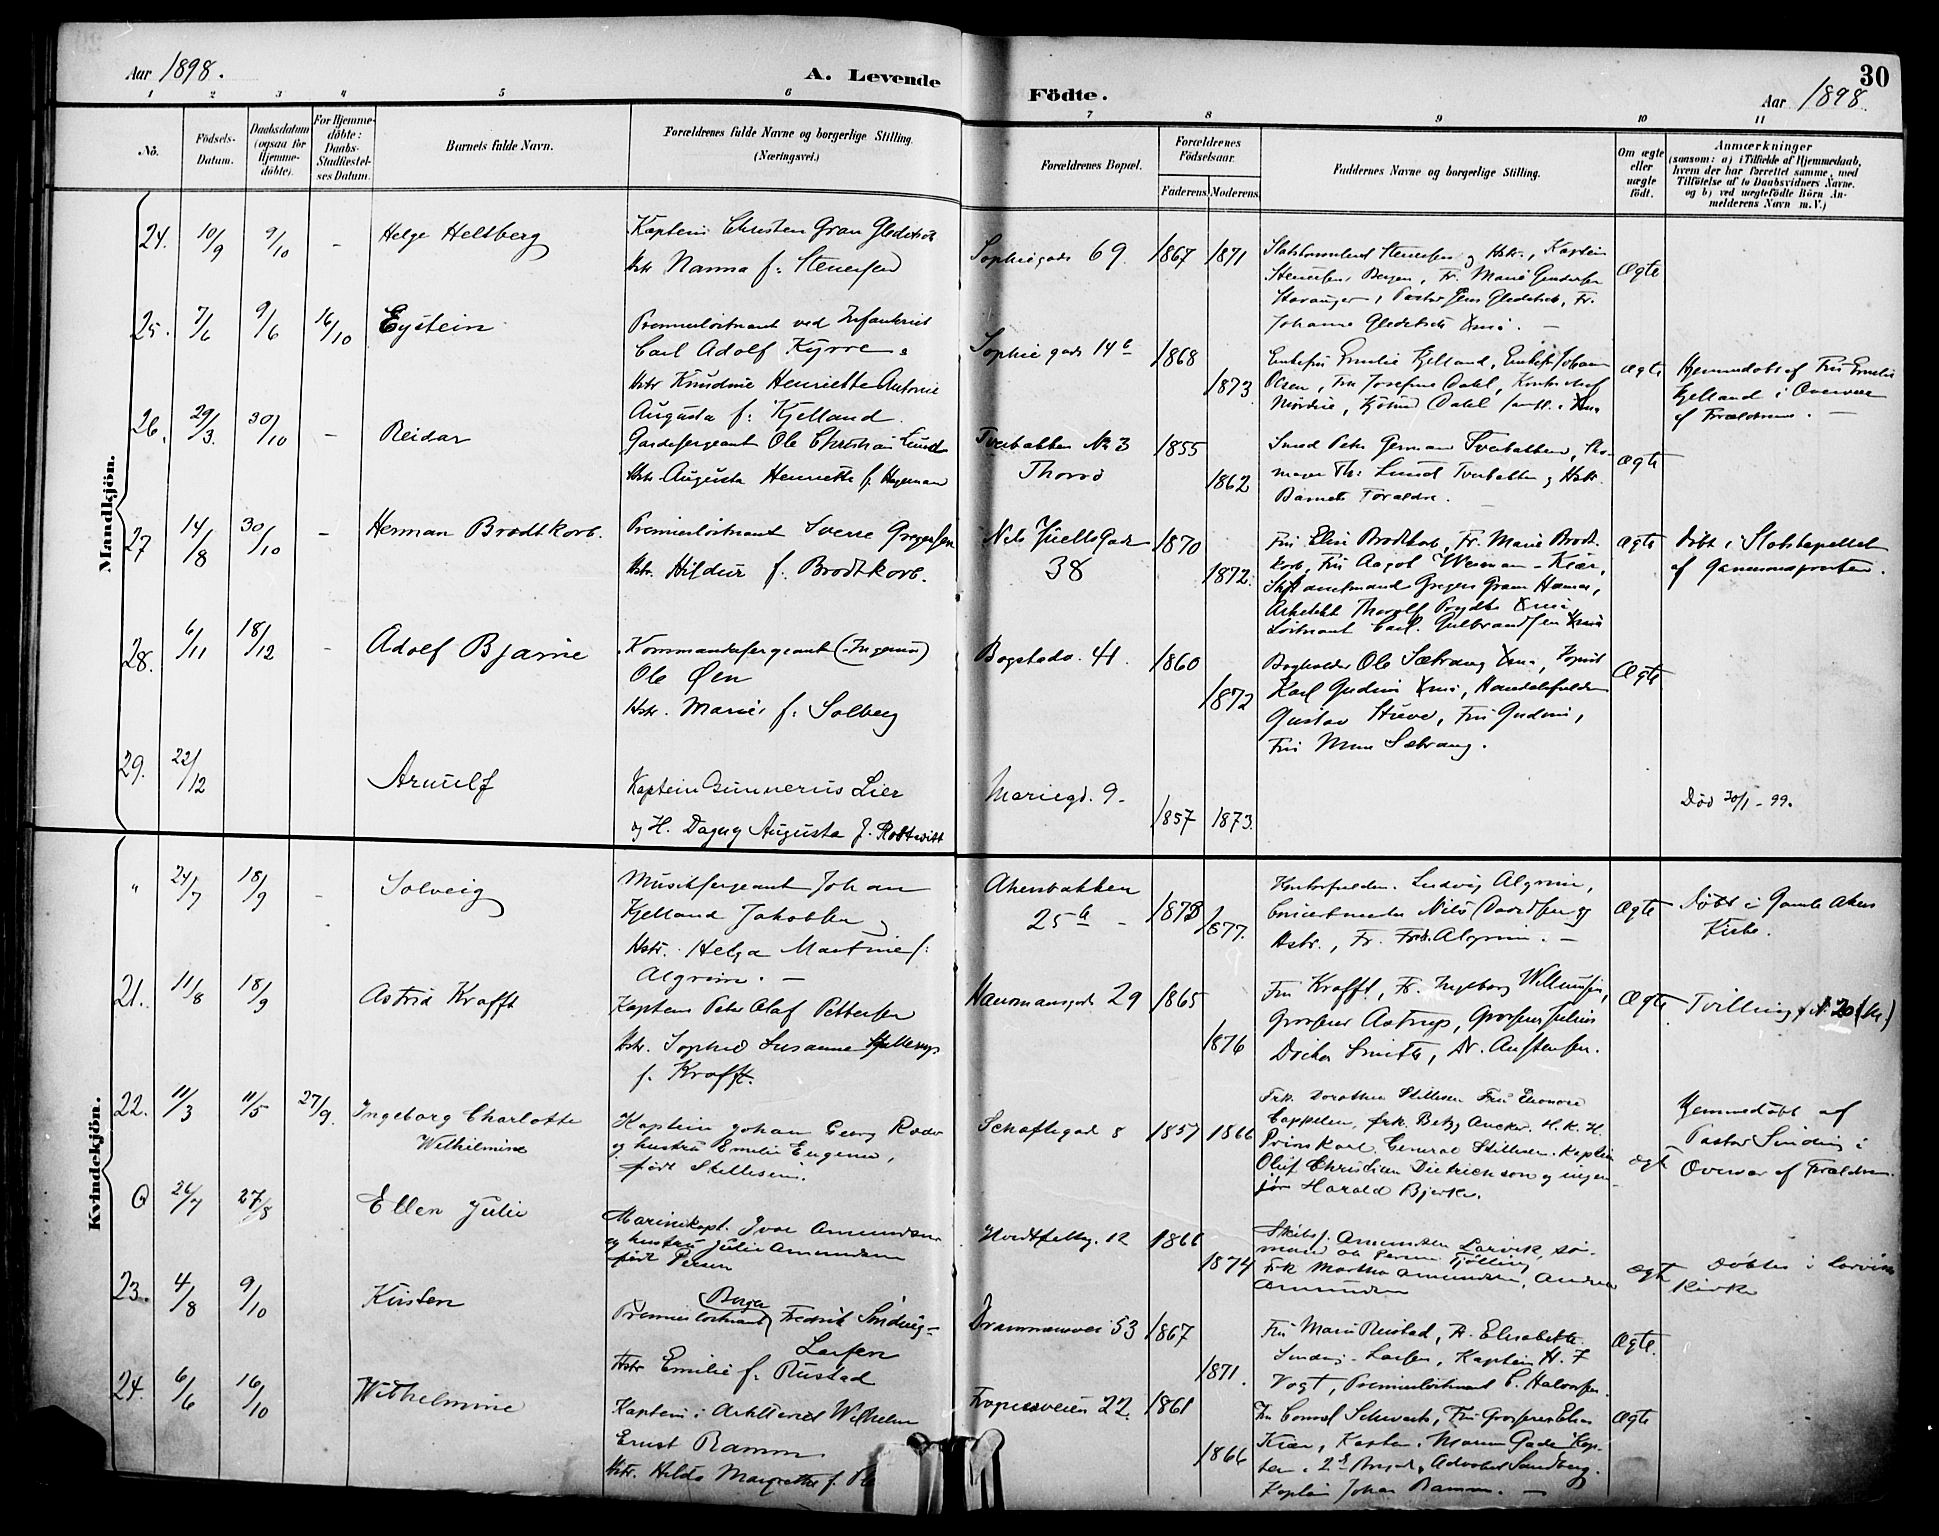 Aar 1898.
A. Levende
Födte.
30
Aar 1898
1 2 3 4 5 6 7 8 9 10 11
No.
Födsels-Datum.
Daabsdatum (ogsaa for Hjemme-döbte).
For Hjemme-döbte: Daabs-Stadfæstel-ses Datum.
Barnets fulde Navn.
Forældrenes fulde Navne og borgerlige Stilling.
(Næringsvei.)
Forældrenes Bopæl.
Forældrenes Födselsaar.
Faderens Moderens
Faddernes Navne og borgerlige Stilling.
Om ægte eller uægte födt.
Anmærkninger
(saasom: a) i Tilfælde af Hjemmedaab, hvem der har forrettet samme, med Tilföielse af to Daabsvidners Navne, og b) ved uægtefödte Börn An-melderens Navn m. V.)
Mandkjön.
24. 10/9 9/10 - Helge Heltberg
Kaptein Christen Gran Gleditsch
Hstr Nanna f. Stenersen
Sophiegade 69. 1867 1871
Stenersen og Hstr., Kaptein
Stenersen, Bergen, Fr. Marie
Stavanger, Pastor Jens Gleditsch, Fr.
Johanne Gleditsch Xnia. -
Ægte
25. 7/6 9/6 16/10 Eystein
Premierløitnant ved Infanteriet
Carl Adolf Kyrre
Hstr Knudine Henriette Antonie
Augusta f: Kjelland.
Sophie gade 14 b 1868 1873
Enkefru Emilie Kjelland, Enkefr. Johanne
Olsen, Fru Josefine Dahl,
Dahl
Ægte
Hjemmedöbt af Fru Emilie
Kjelland i Overvær
af Forældrene. -
26. 29/3. 30/10 - Reidar
Gardesergeant Ole Christian Lund
Hstr. Augusta Henriette f. Hageman
Tverbakken No 3
1855 1862
Smed Peter German Tverbakken,
Th. Lund Tverbakken og Hstr.
Barnets Forældre.
Ægte
27 14/8 30/10 - Herman Brodtkorb.
Premierløitnant Sverre Gregersen
Hstr. Hildur f. Brodtkorb.
Nils Juels Gade
38
1870 1872.
Fru Elise Brodtkorb, Fr. Marie Brodt-
korb, Fru Aagot Kiær,
Stiftamtmand Gregers Gram Hamar,
Arkitekt Thorolf Prydtz Xnia
Løitnant Carl Gulbrandsen Xnia
Ægte
Døbt i Slotskapellet
af Garnisonspresten.
28. 6/11 18/12 - Adolf Bjarne
Kommandersergeant (Ingeniør)
Ole Øen
Hstr. Marie, f. Solberg
Bogstadv. 41. 1860 1872
Bogholder Ole Sætrang Xnia,
Karl Gudim Xnia, Handelsfuldm
Gustav Struve, Fru Gudim,
Fru Sætrang.
Ægte
29. 22/12 Arnulf
Kaptein Gunnerius Lier
og H. Dagny Augusta f. Rottwitt
Mariegd. 9. 1857 1873.
Død 30/1 - 99.
Kvindekjön.
" 24/7 18/9 - Solveig
Musiksergeant Johan
Kjelland Jakobsen
Hstr. Helga Martine f:
Algrim. -
Akersbakken
25 b - 1873 1877.
Kontorfuldm. Ludvig Algrim,
Nils Davidsen og
Hstr., Fr. Algrim. -
Ægte
Døbt i Gamle Akers
Kirke.
21. 11/8 18/9 Astrid Krafft
Kaptein Peter Olaf Pettersen
Hstr. Sophie Susanne
f. Krafft.
Hausmansgade 29 1865 1876
Fru Krafft, Fr. Ingeborg Willumsen,
Grosserer Astrup, Grosserer Julius
Doktor Smith, Dr. Austensen.
Ægte
Tvilling af No 20 (M.)
22. 11/3 11/5 27/9. Ingeborg Charlotte
Wilhelmine
Kaptein Johan Georg Ræder
og hustru Emilie Eugenie,
født Stillesen.
Schaftegade 8 1857 1866
Frk. Dorothea Stillesen Fru Eleonore
Cappelen, frk. Betzy Ancker. H. K. H.
Prins Karl, General Stillesen, Kaptein
Oluf Christian Dietrichson og ingen-
jør Harald Bjerke.
Ægte
Hjemmedöbt af
Pastor Sinding i
Overvær af Forældrene.
0 26/7 27/8 Ellen Julie
Marinekapt. Ivar Amundsen
og hustru Julie Amundsen
født Persen
12 1866 1874
Skibsf. Amundsen Larvik, sø-
mand Ole Persen Tjølling
Frk Martha Amundsen, Andrea
Amundsen
Ægte
Døbtes i Larviks
Kirke
23. 4/8 9/10 Kirsten
Premierløitnant Birger Fredrik Sinding-
Larsen
Hstr Emilie f. Rustad
Drammensvei 53 1867 1871.
Fru Marie Rustad, Fr. Elisabeth
Sinding-Larsen, Kaptein H. F
Vogt, Premierløitnant C. Halvorsen.
Ægte.
24. 6/6 16/10 Wilhelmine
Kaptein i Artilleriet Wilhelm
Ernst Ramm
Hstr. Hilda Margrethe f.
Frognerveien 22. 1861 1866
Fru Consul Schwartz, Fru Grosserer Elise
Kiær, Kaptein i Marinen Gade, Kap-
tein i 2d Brigade, Advokat Sandberg.
Kaptein Johan Ramm. -
Ægte